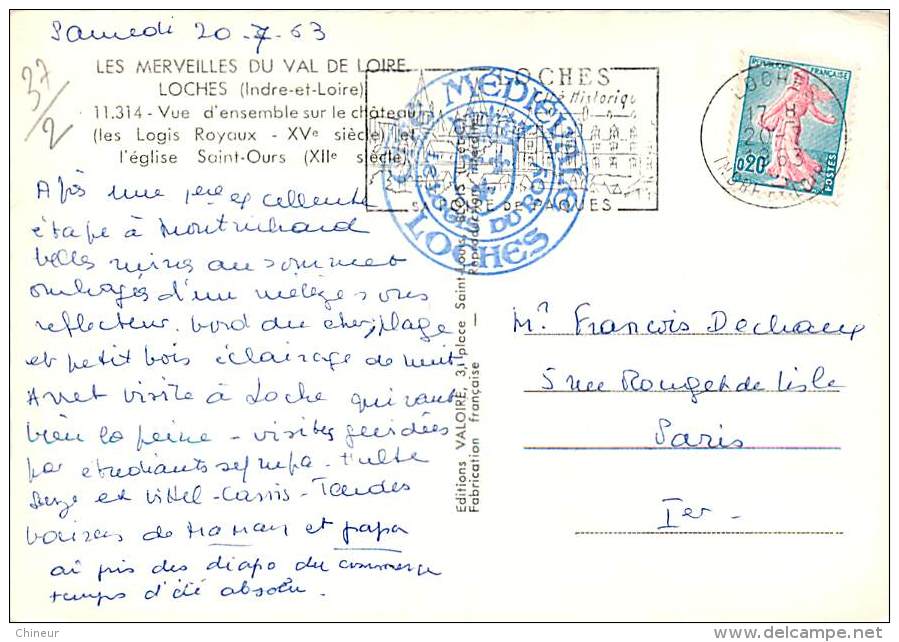 Samedi 20-7-63
37/2
LES MERVEILLES DU VAL DE LOIRE
LOCHES (Indre-et-Loire)
11.314 - Vue d'ensemble sur le château
(les Logis Royaux - XVe siècle) et
l'église Saint-Ours (XIIe siècle)
Après une 1ere excellente
étape à Montrichard
belles ruines au sommet
ombragés d'un mélèze sous
reflecteur. bord du cher, plage
et petit bois éclairage de nuit
Arret visite à Loche qui vaut
bien la peine - visites guidées
par étudiants sympa. Halte
et Vittel-Cassis - Tendes
baisers de Maman et papa
ai pris des diapo du
temps d'été absolu.
CITÉ MÉDIÉVALE
LES LOGIS DU ROY
LOCHES
LOCHES
Cité Historique
SA FOIRE DE PAQUES
LOCHES
17 H
20-7
1963
INDRE-ET-L.
REPUBLIQUE FRANÇAISE
0,20
POSTES
Editions VALOIRE, 3, place Saint-Louis, BLOIS (L.-et-C.)
Fabrication française — Reproduction interdite
Mr. François Dechaux
5 rue Rouget de Lisle
Paris
Ier -
Chineur
delcampe.net